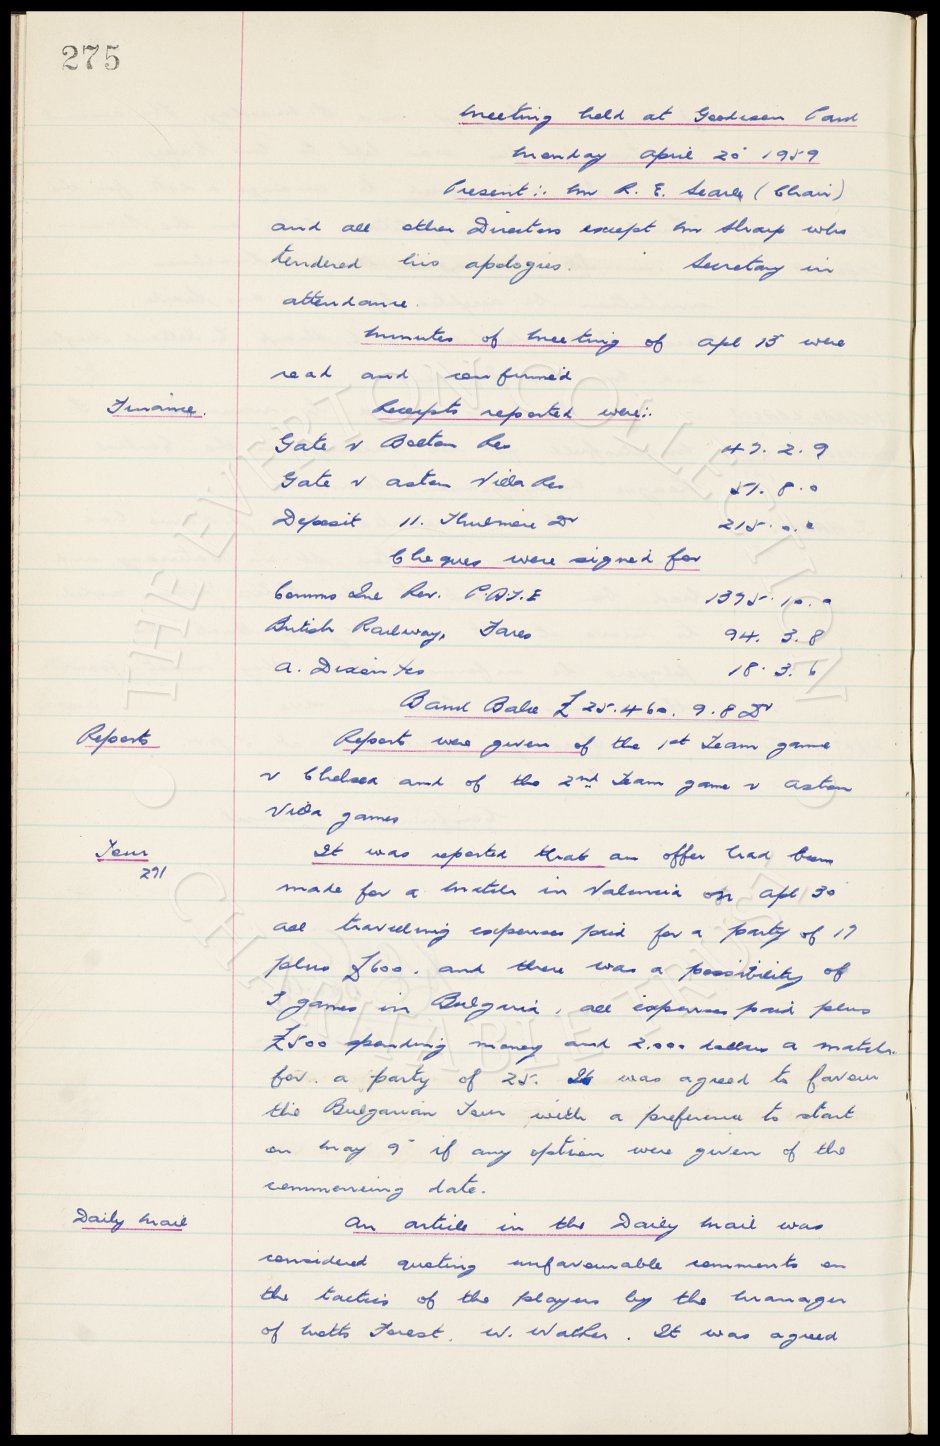 275
Meeting held at Goodison Park
Monday April 20 1959
Present:. Mr R. E. Searle (Chair)
and all other Directors except Mr Sharp who
tendered his apologies. Secretary in
attendance.
Minutes of Meeting of Apl 13 were
read and confirmed
Finance. Receipts reported were:.
Gate v Bolton Res 47. 2. 9
Gate v Aston Villa Res 51. 8. 0
Deposit 11. Thirlmere Dr 215. 0. 0
Cheques were signed for
Comms Ine Rev. P.A.Y.E 1375. 10. 0
British Railways, Fares 94. 3. 8
A. Dixon 18. 3. 6
Bank Balce £25.460. 9. 8 Dr
Reports Reports were given of the 1st Team game
v Chelsea and of the 2nd Team game v Aston
Villa games
Tour It was reported that an offer had been
291
made for a match in Valencia on Apl 30
all travelling expenses paid for a party of 17
plus £600. and there was a possibility of
3 games in Bulgaria, all expenses paid plus
£500 spending money and 2.000 dollars a match.
for a party of 25. It was agreed to favour
the Bulgarian Tour with a preference to start
on May 9 if any option were given of the
commencing date.
Daily Mail An article in the Daily Mail was
considered quoting unfavourable comments on
the tactics of the players by the Manager
of Notts Forest. W. Walker. It was agreed
© THE EVERTON COLLECTION
CHARITABLE TRUST